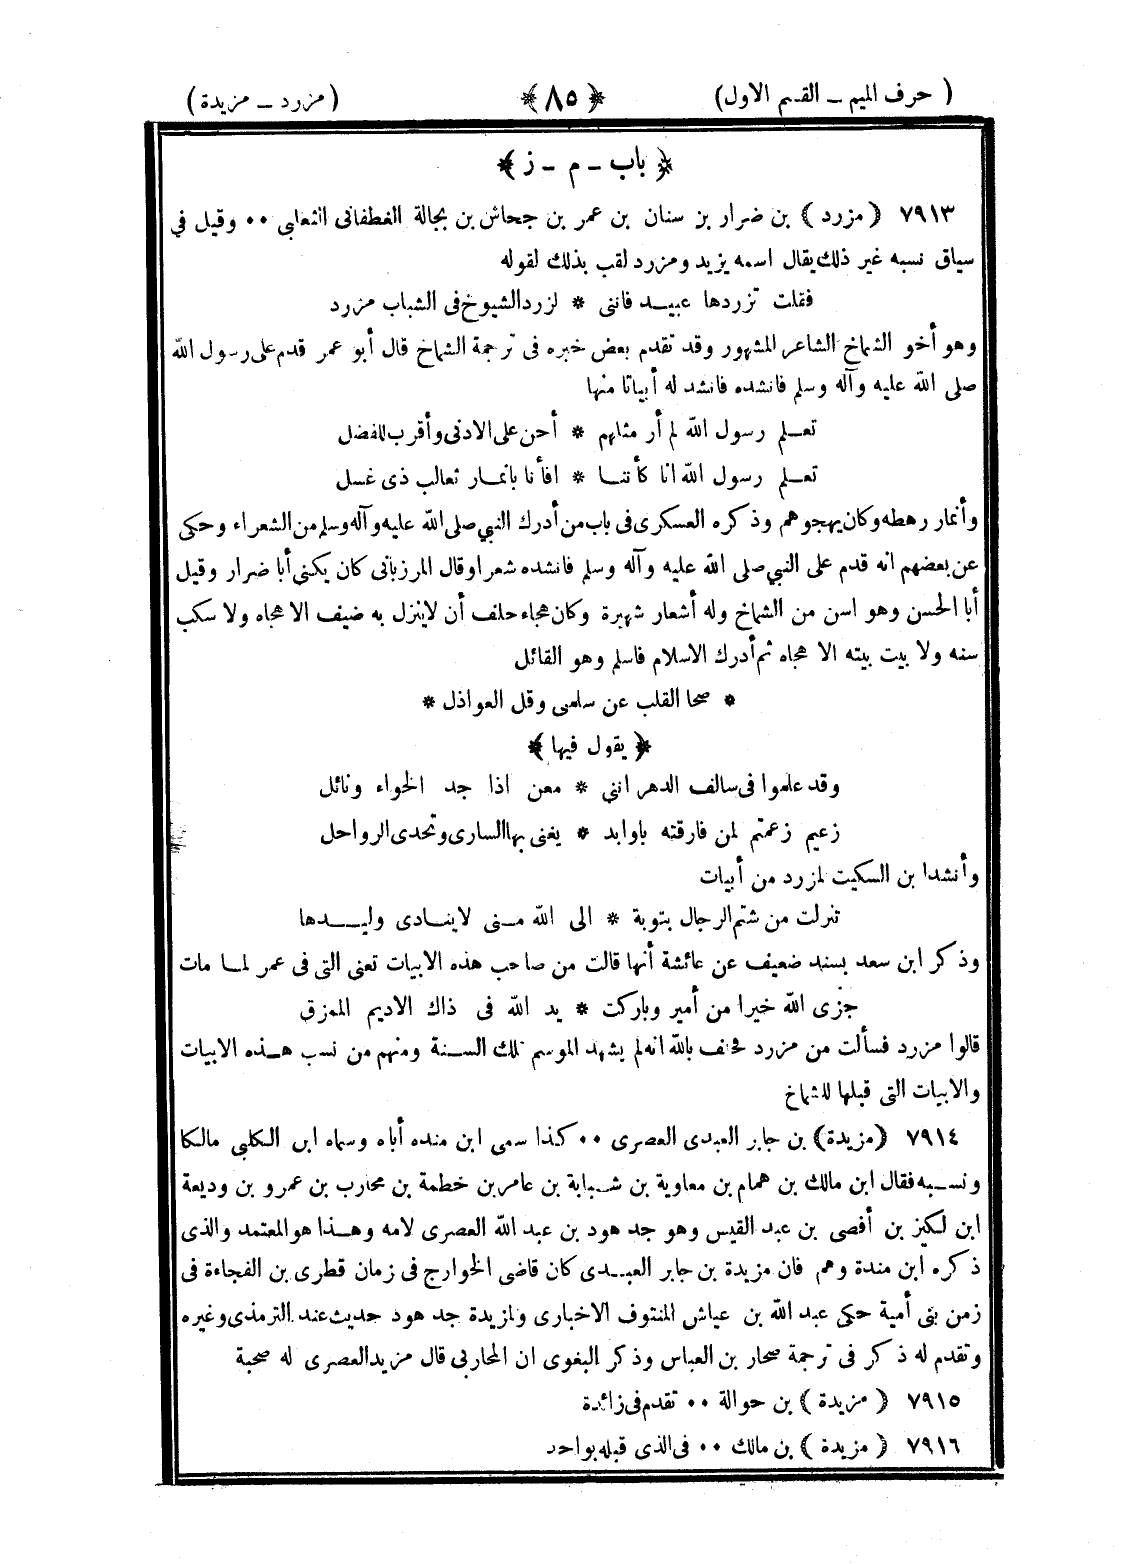 ( حرف الميم ــ القسم الاول)
﴿ ٨٥ ﴾
(مزرد ــ مزيدة)
﴿ باب ــ م ــ ز ﴾
٧٩١٣ ﴿مزرد﴾ بن ضرار بن سنان بن عمر بن جحاش بن بجالة الغطفانى الثعلبى ٠٠ وقيل في
سياق نسبه غير ذلك يقال اسمه يزيد ومزرد لقب بذلك لقوله
فقلت تزردها عبيد فاننى * لزرد الشيوخ فى الشباب مزرد
وهو أخو الشماخ الشاعر المشهور وقد تقدم بعض خبره فى ترجمة الشماخ قال أبو عمر قدم على رسول الله
صلى الله عليه وآله وسلم فانشده فانشد له أبياتا منها
تعلم رسول الله لم أر مثلهم * أحن على الادنى وأقرب للفضل
تعلم رسول الله انا كأننا * افأنا بانمار ثعالب ذى غسل
وأنمار رهطه وكان يهجوهم وذكره العسكرى فى باب من أدرك النبي صلى الله عليه وآله وسلم من الشعراء وحكى
عن بعضهم انه قدم على النبي صلى الله عليه وآله وسلم فانشده شعرا وقال المرزبانى كان يكنى أبا ضرار وقيل
أبا الحسن وهو اسن من الشماخ وله أشعار شهيرة وكان هجاء حلف أن لاينزل به ضيف الا هجاه ولا سكب
سنه ولا بيت بيته الا هجاه ثم أدرك الاسلام فاسلم وهو القائل
* صحا القلب عن سلمى وقل العواذل *
﴿ يقول فيها ﴾
وقد علموا فى سالف الدهر اننى * معن اذا جد الخواء ونائل
زعيم زعمتم لمن فارقته باوابد * يغنى بها السارى وتحدى الرواحل
وأنشد ا بن السكيت لمزرد من أبيات
تنزلت من شتم الرجال بتوبة * الى الله منى لاينادى وليدها
وذكر ابن سعد بسند ضعيف عن عائشة أنها قالت من صاحب هذه الابيات تعنى التى فى عمر لما مات
جزى الله خيرا من أمير وباركت * يد الله فى ذاك الاديم الممزق
قالوا مزرد فسألت من مزرد فحلف بالله انه لم يشهد الموسم تلك السنة ومنهم من نسب هذه الابيات
والابيات التى قبلها للشماخ
٧٩١٤ ﴿مزيدة﴾ بن جابر العبدى العصرى ٠٠ كذا سمى ابن منده أباه وسماه ابن الكلبى مالكا
ونسبه فقال ابن مالك بن همام بن معاوية بن شبابة بن عامر بن خطمة بن محارب بن عمرو بن وديعة
ابن لكيز بن أفصى بن عبد القيس وهو جد هود بن عبد الله العصرى لامه وهذا هو المعتمد والذى
ذكره ابن مندة وهم فان مزيدة بن جابر العبدى كان قاضى الخوارج فى زمان قطرى بن الفجاءة فى
زمن بنى أمية حكى عبد الله بن عياش المنتوف الاخبارى ولمزيدة جد هود حديث عند الترمذى وغيره
وتقدم له ذكر فى ترجمة صحار بن العباس وذكر البغوى ان المحاربي قال مزيد العصرى له صحبة
٧٩١٥ ﴿ مزيدة ﴾ بن حوالة ٠٠ تقدم فى زائدة
٧٩١٦ ﴿ مزيدة ﴾ بن مالك ٠٠ فى الذى قبله بواحد